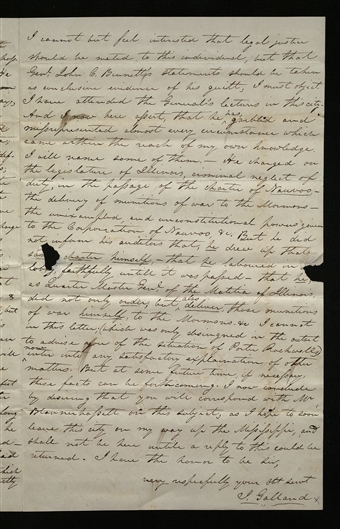 I cannot but feel interested that legal justice
should be meted to this individual, but that
Genl. John C. Bennett's statements should be taken
as conclusive evidence of his guilt, I must object
I have attended the General's lectures in this city.
And I now here assert, that he has garbled and
misrepresented almost every circumstance which
came within the reach of my own knowledge.
I will name some of them. — He charged on
the legislature of Illinois, criminal neglect of
duty, in the passage of the charter of Nauvoo —
the delivery of munitions of war to the Mormons —
the unexampled and unconstitutional powers given
to the Corporation of Nauvoo, &c. But he did
not inform his auditors that, he drew up that
charter himself — that he laboured in
faithfully untill it was passed — that he
as Quarter Master Genl. of the Militia of Illinois,
did not only order, but also deliver those munitions
of war himself to the Mormons. &c I cannot
in this letter (which was only designed in the outset
to advise you of the situation of Porter Rockwell)
now enter into any satisfactory explanation of other
matters. But at some future time if necessary
those facts can be forthcoming. I now conclude
by desiring that you will correspond with Mr
on this subject, as I hope to soon
leave this city on my way up the Mississippi, and
shall not be here untill a reply to this could be
returned. I have the honor to be Sir,
very respectfully your Obt Servt
I. Galland